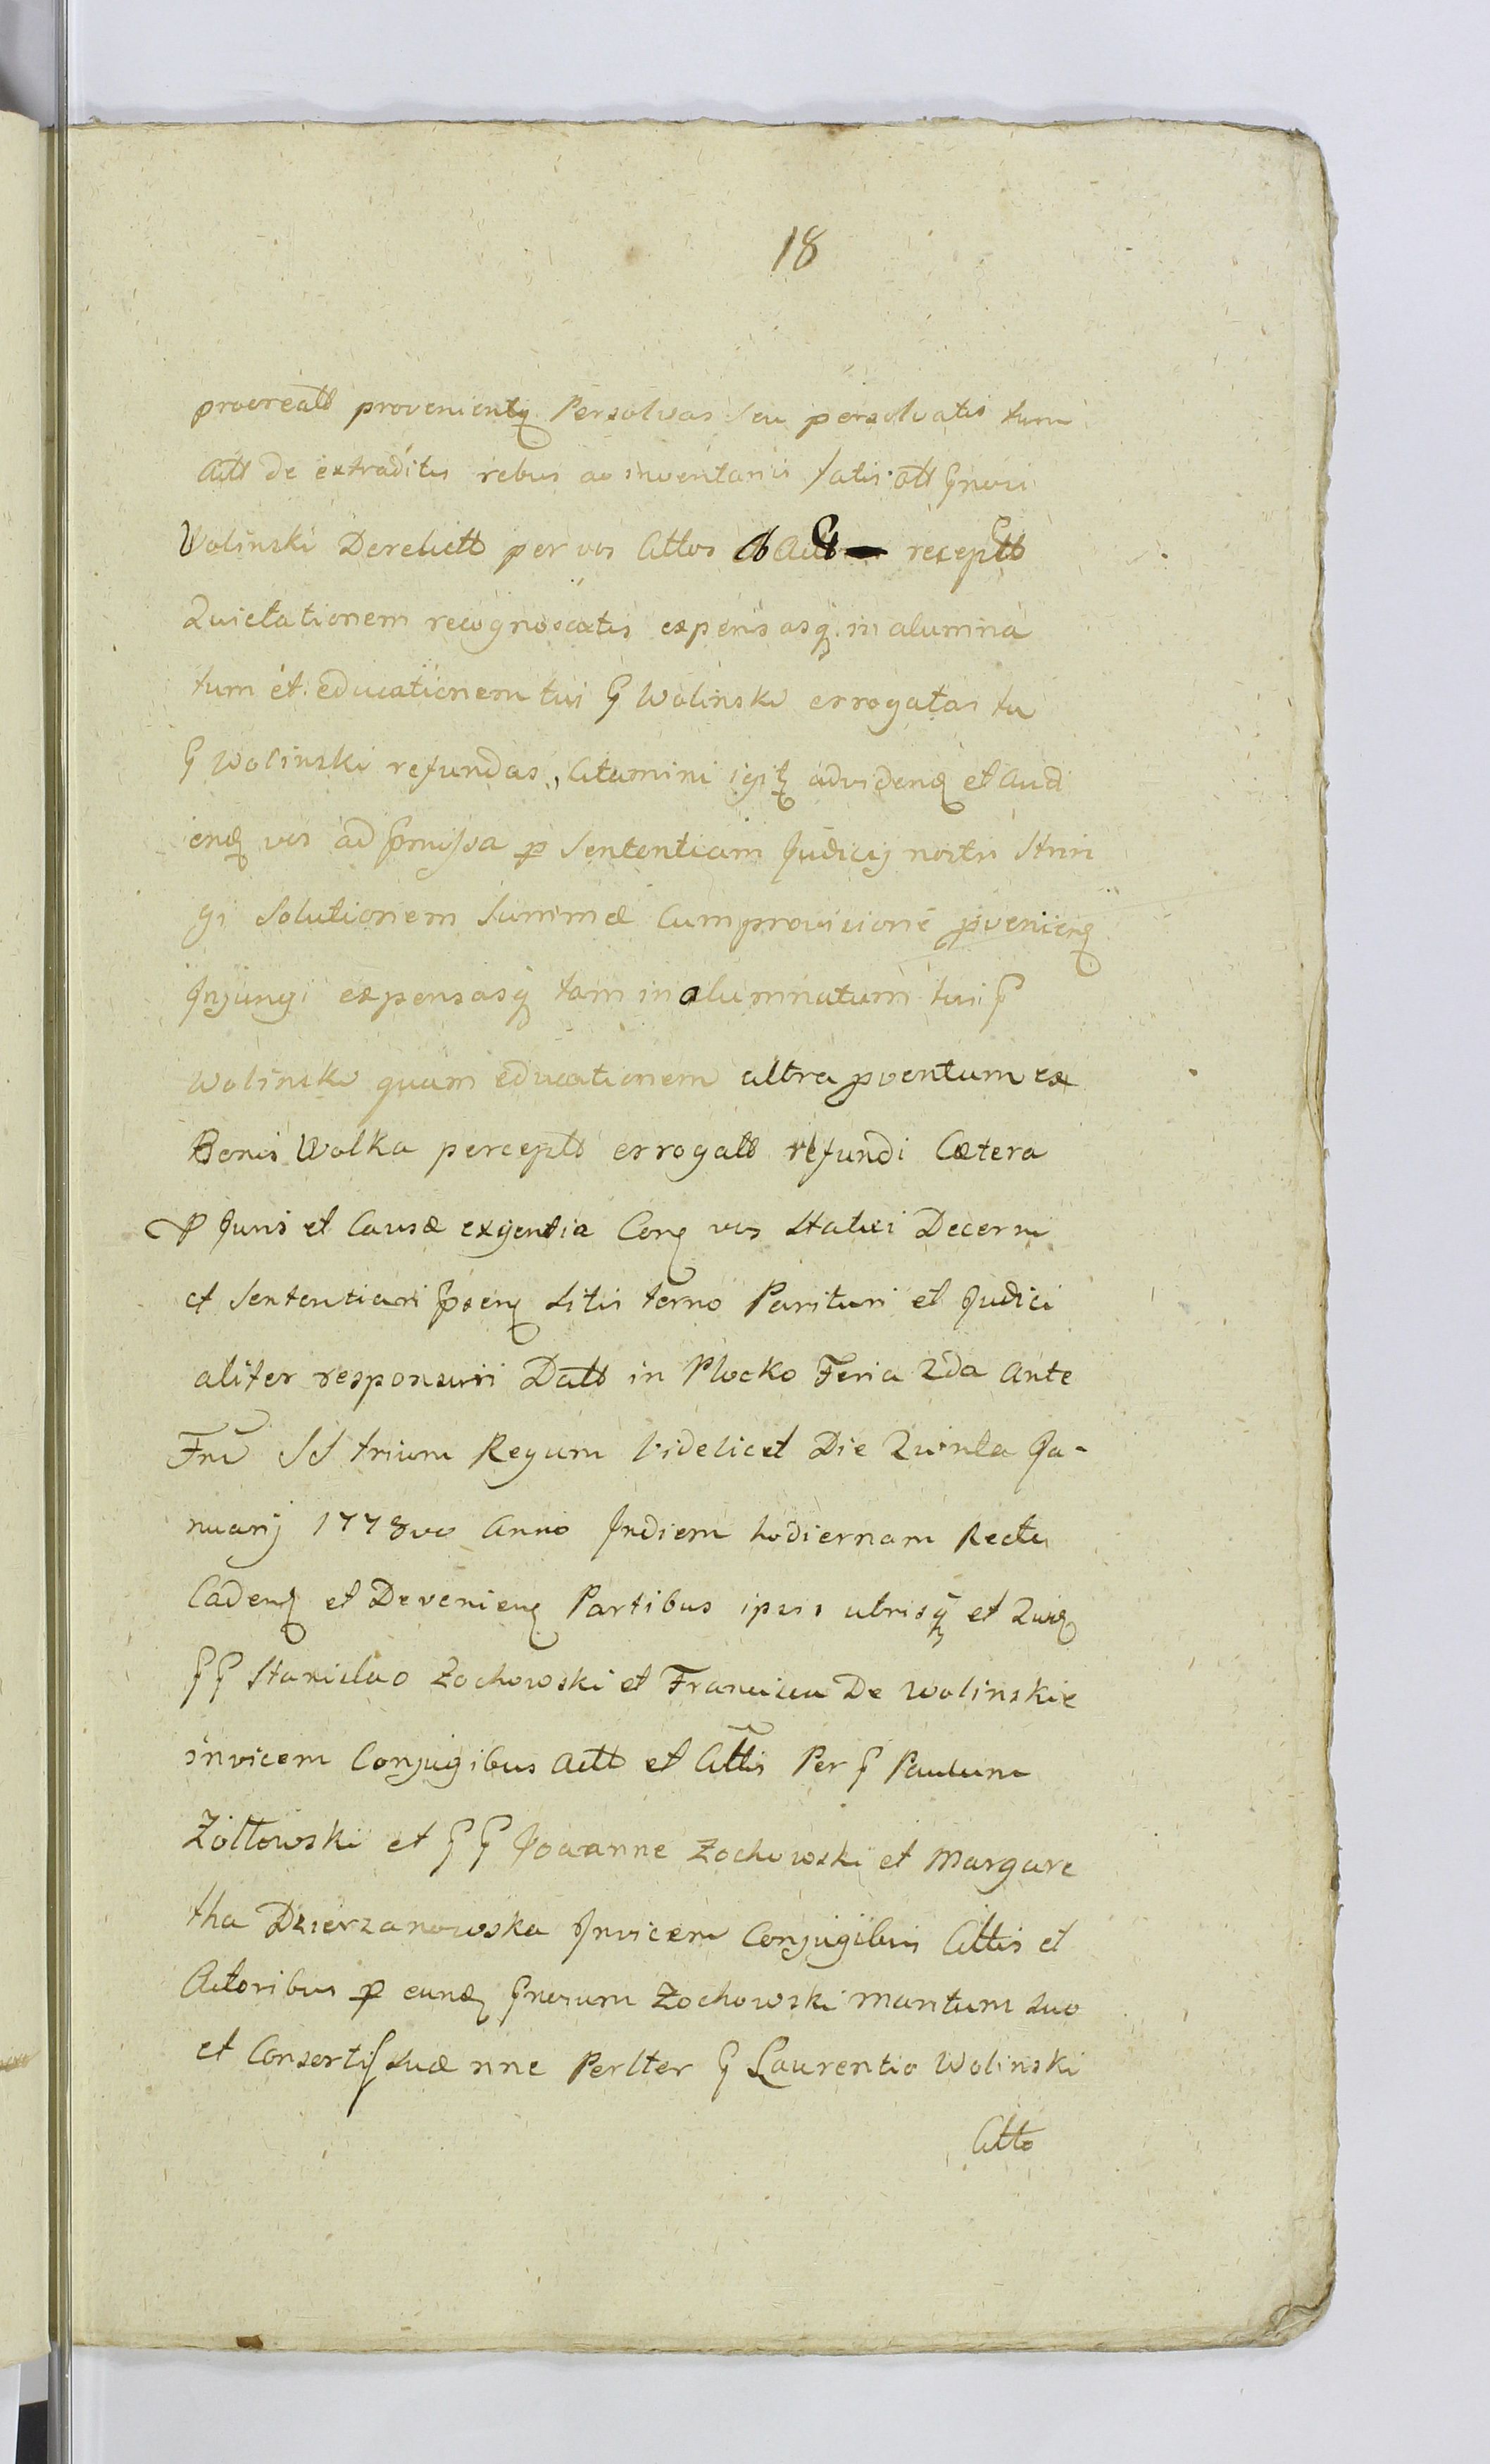 18
procreatt provenientq Persolvas seu persolvatis tum
Actt de extraditis rebus ac inventariis fatis att Gnosi
Wolinski Derelictt per vos Cittos ab Actt receptt
Quietationem recognoscatis expensasq in alumna
tum et educationem tui G Wolinski errogatas tu
G Wolinski refundas, Citamini igitq advidenq et Audi
enq vos ad pmissa p Sententiam Judicij nostri Strin
gi Solutionem Summæ Cum provicione pvenienq
Injungi expensasq tam in alumnatum tui G
Wolinski quam educationem ultra pventum ex
Bonis Wolka perceptt errogatt refundi Cætera
p Juris et Causæ exigentia Cerq vos Statui Decerni
et Sententiari psenq Litis termo Parituri et Judici
aliter responsuri Datt in Plocko Feria 2da Ante
Fru SS trium Regum Videlicet Die Quinta Ja-
nuarij 1778vo Anno Indiem hodiernam Recte
Cadenq et Devenienq Partibus ipsis utrisq et Quidq
GG Stanislao Zochowski et Francisca De Wolinskie
invicem Conjugibus Actt et Cittis Per G Paulum
Zółtowski et GG Joaanne Zochowski et Margare
tha Dzierzanowska Invicem Conjugibus Cittis et
Actoribus p eundq Gnosum Zochowski Maritum suo
et Consortis suæ nne Perlter G Laurentio Wolinski
Citto